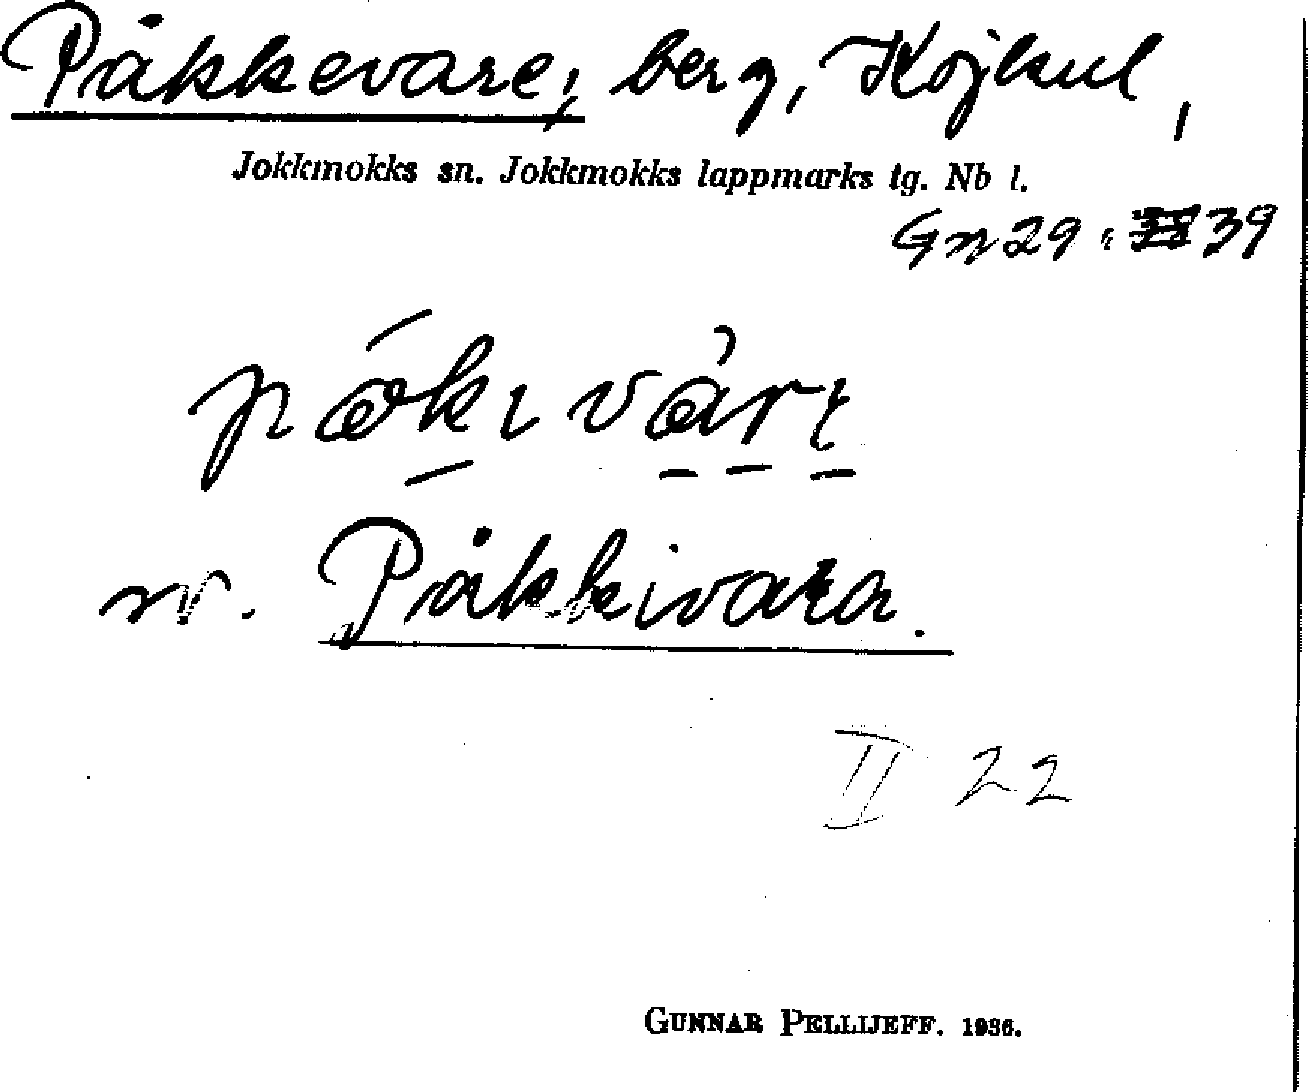 Påkkevare, berg, Kojkul,
Jokkmokks sn. Jokkmokks lappmarks tg. Nb l.
Gn 29 : 39
Påkkivara.
II 22
GUNNAR PELLIJEFF. 1936.